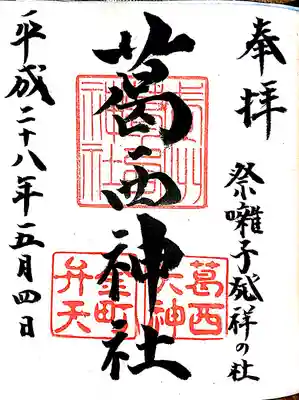 奉拝
祭囃子発祥の社
葛西神社
平成二十八年五月四日
葛西
大神
金町
弁天